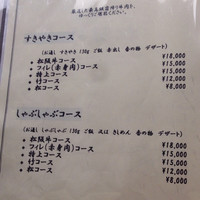 厳選した最高級霜降り牛肉を、
ゆっくりご賞味ください。
すきやきコース
(お通し すきやき 150g ご飯 赤出し 香の物 デザート)
• 松阪牛コース ¥18,000
• フィレ(赤身肉)コース ¥15,000
• 特上コース ¥15,000
• 竹コース ¥12,000
• 松コース ¥8,000
しゃぶしゃぶコース
(お通し しゃぶしゃぶ 150g ご飯 又は きしめん 香の物 デザート)
• 松阪牛コース ¥18,000
• フィレ(赤身肉)コース ¥15,000
• 特上コース ¥15,000
• 竹コース ¥12,000
• 松コース ¥8,000